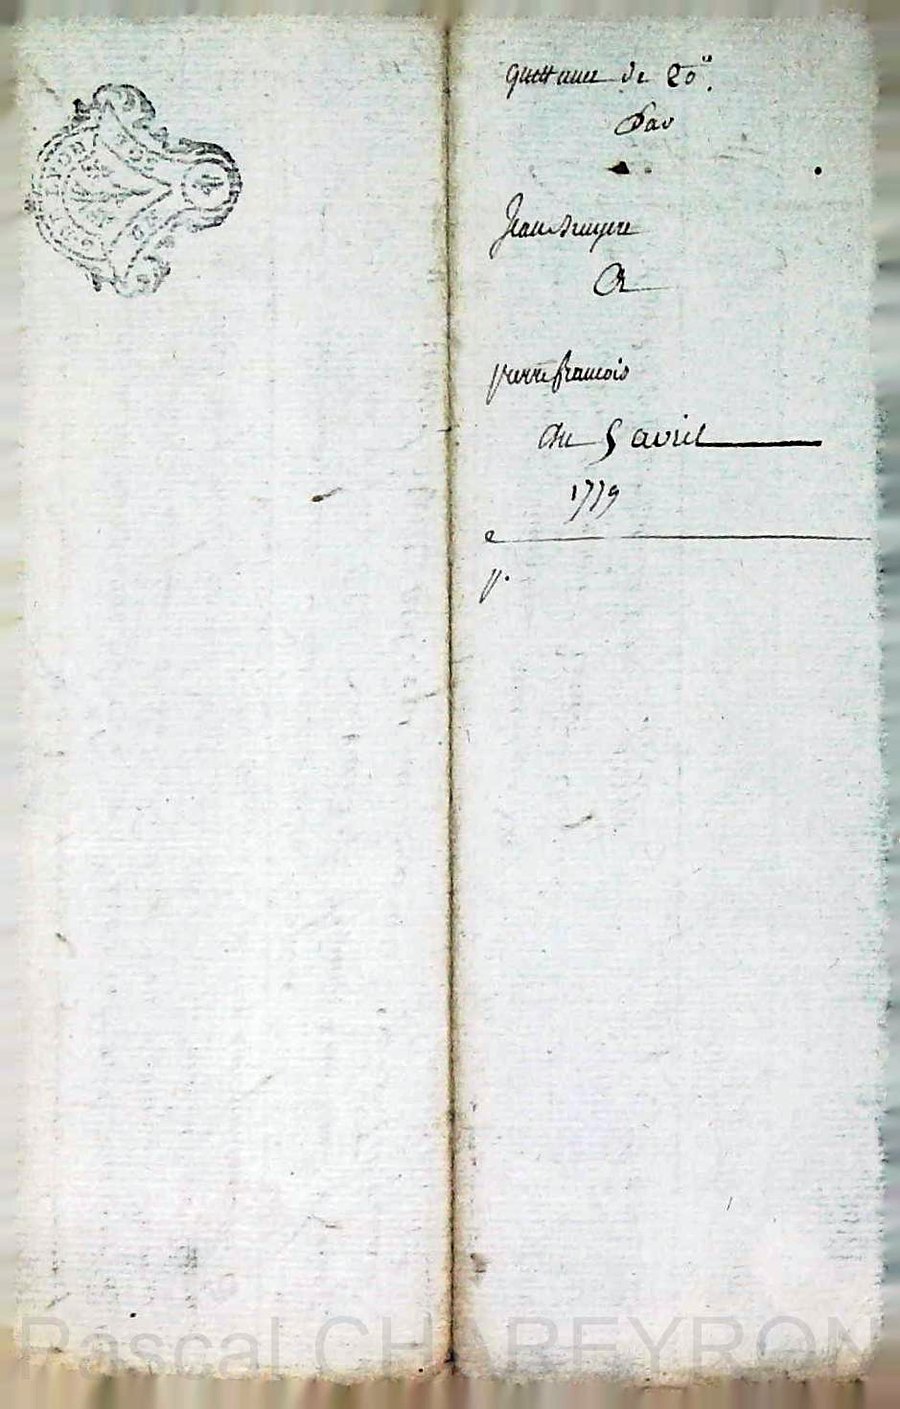 quittance de 20ᵗᵗ.
Par
Jean bruyere
A
pierre francois
du 5 avril
1779
p.
LYON
Pascal CHAREYRON